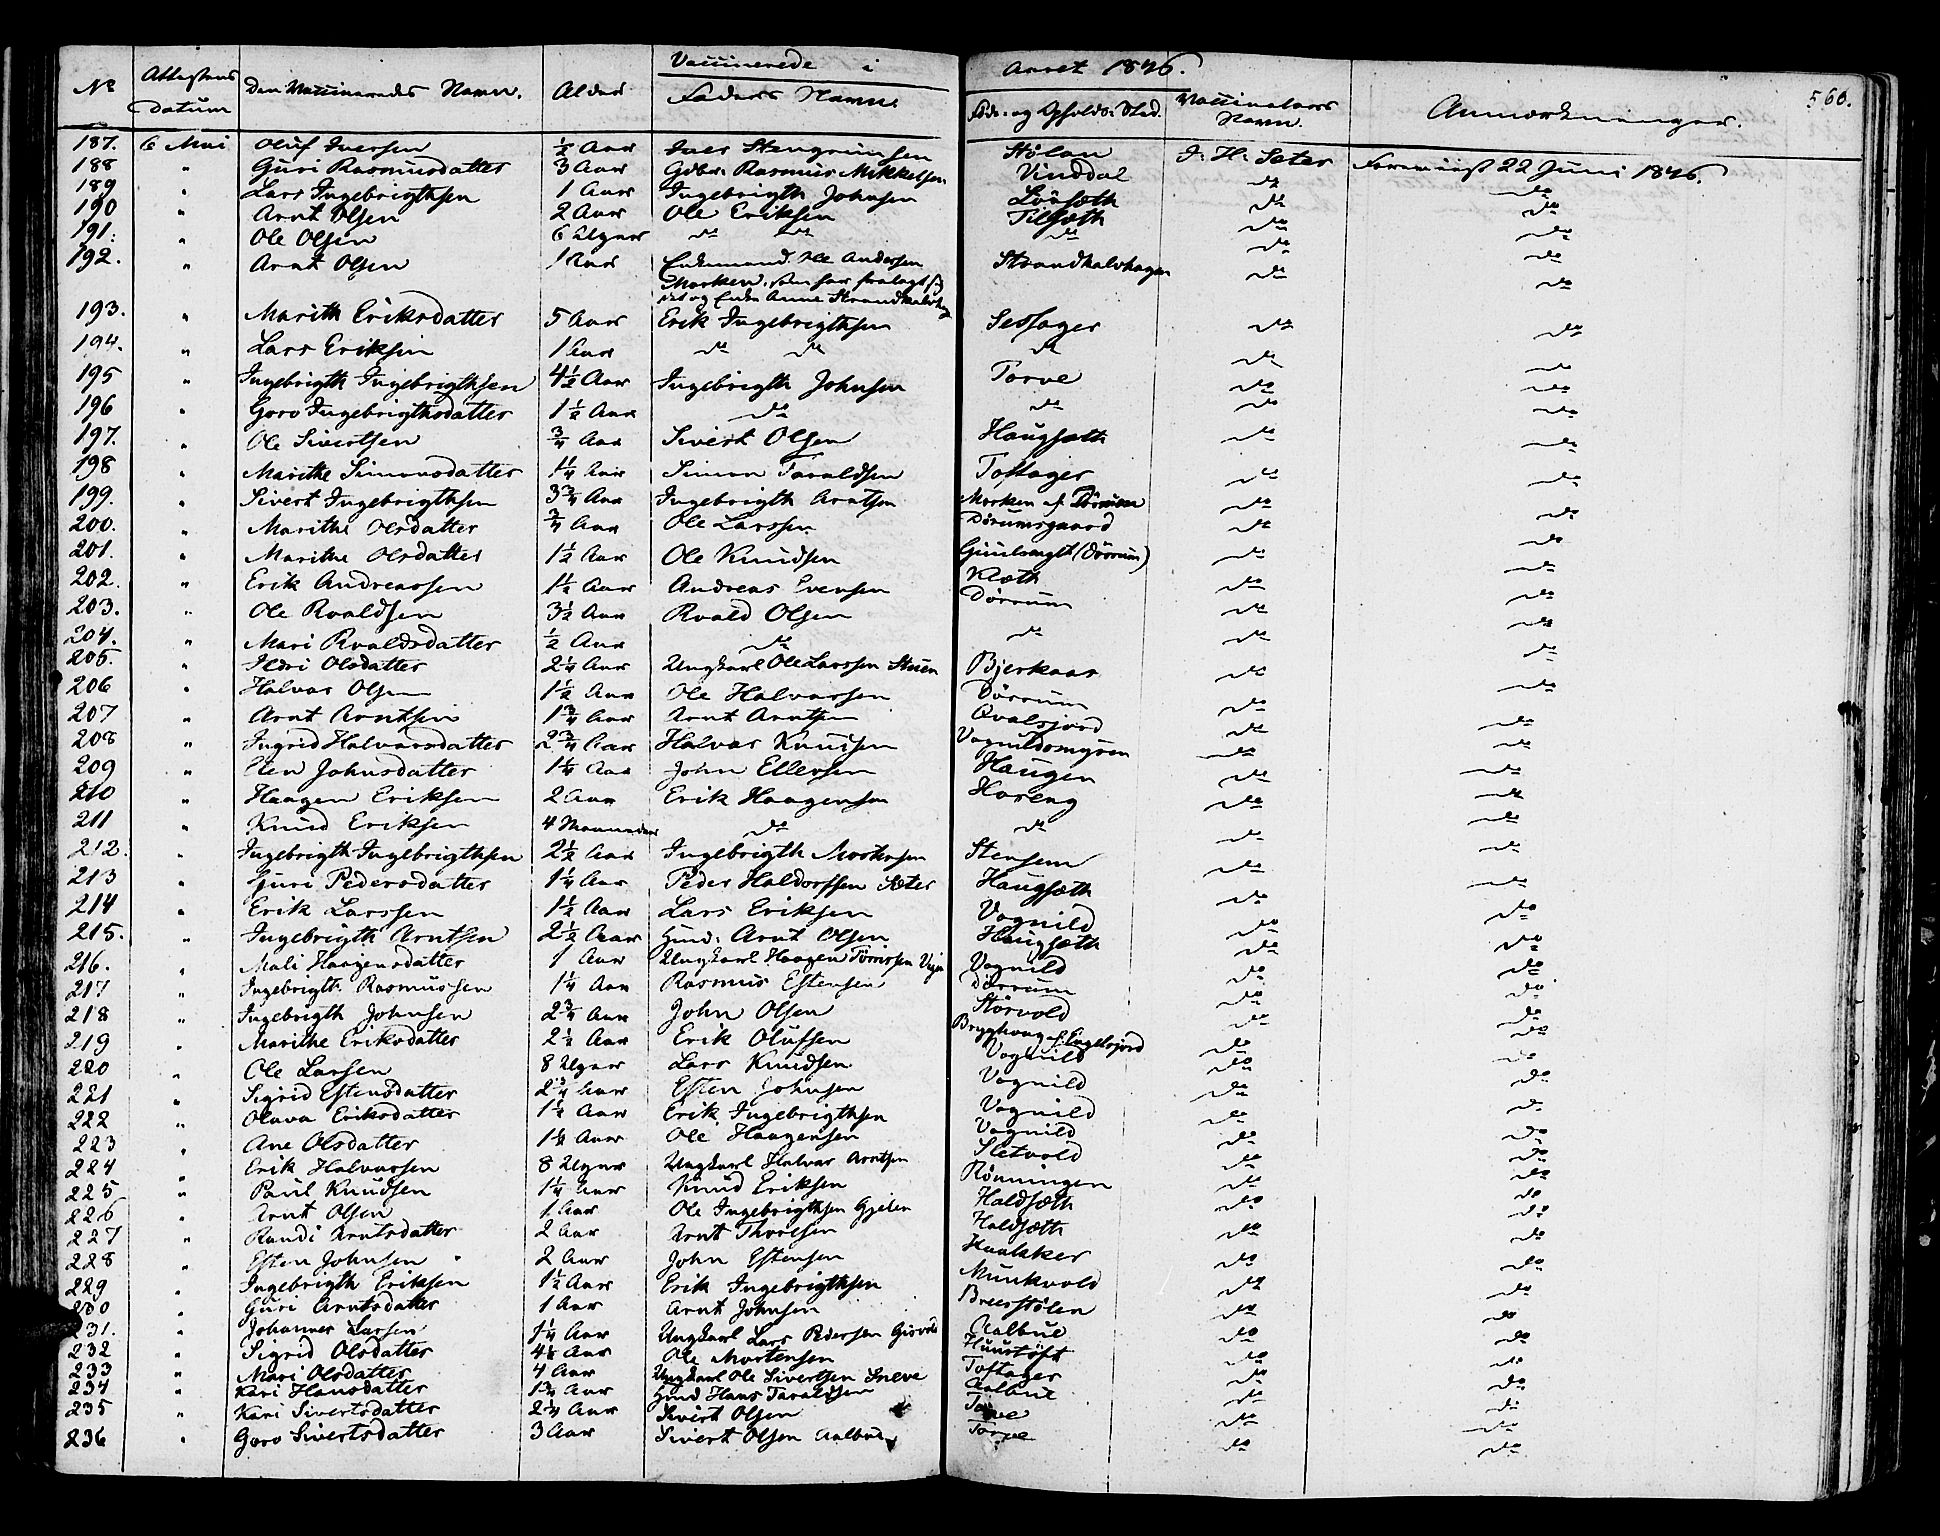 Vaccinerede i Aaret 1846. 560.
No Attestens Datum Den Vaccineredes Navn. Alder Faders Navn Føde- og Opholds-Sted. Vaccinateurs Navn. Anmærkninger.
187. 6 Mai Oluf Iversen ½ Aar Iver Stengrimsen Stølen I. H. Seter Foreviist 22 Juni 1846.
188 " Guri Rasmusdatter 3 Aar Gdbr. Rasmus Mikkelsen Vinddal do do
189 " Lars Ingebrigthsen 1 Aar Ingebrigth Johnsen Løvsæth do do
190 " Arnt Olsen 2 Aar Ole Eriksen Tilsæth do do
191. " Ole Olsen 6 Uger do do do do do
192. " Arnt Olsen 1 Aar Enkemand Ole Andersen Strandkalvhagen do do
Morken, som har forlagt sig
ved og Enke Anne Strandkalvhag
193. " Marith Eriksdatter 5 Aar Erik Ingebrigthsen Sessager do do
194. " Lars Eriksen 1 Aar do do do do do
195 " Ingebrigth Ingebrigthsen 4½ Aar Ingebrigth Johnsen Torve do do
196 " Goro Ingebrigthsdatter 1½ Aar do do do do
197. " Ole Sivertsen ¾ Aar Sivert Olsen Haugsæth do do
198 " Marithe Simonsdatter 1¼ Aar Simon Taraldsen Toftager do do
199. " Sivert Ingebrigthsen 3¾ Aar Ingebrigth Arntsen Morken f. Dørrum do do
200. " Marithe Olsdatter ¾ Aar Ole Larssen Dørumsgaard do do
201. " Marithe Olsdatter 1½ Aar Ole Knudsen (Dørrum) do do
202. " Erik Andreassen 1½ Aar Andreas Evensen Klæth do do
203. " Ole Roaldsen 3½ Aar Roald Olsen Dørrum do do
204. " Mari Roaldsdatter ½ Aar do do do do
205. " Ildri Olsdatter 2¼ Aar Ungkarl Ole Larssen Stuen Bjerkaas do do
206 " Halvar Olsen 1½ Aar Ole Halvarsen Dørrum do do
207 " Arnt Arntsen 1¾ Aar Arnt Arntsen Qvalsjord do do
208 " Ingrid Halvarsdatter 2¾ Aar Halvar Knudsen Vognildsmyren do do
209 " Sten Johnsdatter 1¼ Aar John Ellevsen Haugen do do
210 " Haagen Eriksen 2 Aar Erik Haagensen Horeng do do
211 " Knud Eriksen 4 Maaneder do do do do
212. " Ingebrigth Ingebrigthsen 2½ Aar Ingebrigth Mortensen Stensem do do
213 " Guri Pedersdatter 1¼ Aar Peder Haldorssen Sæter Haugsæth do do
214 " Erik Larssen 1½ Aar Lars Eriksen Vognild do do
215. " Ingebrigth Arntsen 2½ Aar Huusm. Arnt Olsen Haugsæth do do
216. " Mali Haagensdatter 1 Aar Ungkarl Haagens Tørrissen Vognild do do
217 " Ingebrigth Rasmussen 1¼ Aar Rasmus Estensen Dørrum do do
218 " Ingebrigth Johnsen 2¾ Aar John Olsen Størvold do do
219 " Marithe Eriksdatter 2½ Aar Erik Olufsen Brygghoug f. Engelsjord do do
220 " Ole Larsen 8 Uger Lars Knudsen Vognild do do
221 " Sigrid Estensdatter 2¾ Aar Esten Johnsen Vognild do do
222 " Olava Eriksdatter 1¼ Aar Erik Ingebrigthsen Vognild do do
223 " Ane Olsdatter 1¼ Aar Ole Haagensen Vognild do do
224 " Erik Halvarsen 8 Uger Ungkarl Halvar Arntsen Sletvold do do
225 " Paul Knudsen 1¼ Aar Knud Eriksen Rønningen do do
226 " Arnt Olsen 1 Aar Ole Ingebrigthsen Gjelen Haldsæth do do
227 " Randi Arntsdatter 2 Aar Arnt Thoresen Haldsæth do do
228 " Esten Johnsen 2 Aar John Estensen Haakker do do
229 " Ingebrigth Eriksen 1½ Aar Erik Ingebrigthsen Munkvold do do
230 " Guri Arntsdatter 1 Aar Arnt Johnsen Breestølen do do
231. " Johannes Larsen 1¼ Aar Ungkarl Lars Pedersen Gisvold Aalbue do do
232 " Sigrid Olsdatter 4½ Aar Ole Mortensen Huustøft do do
233 " Mari Olsdatter 4 Aar Ungkarl Ole Sivertsen Sneve Toftager do do
234 " Kari Hansdatter 1¾ Aar Huusm. Hans Taraldsen Aalbue do do
235 " Kari Sivertsdatter 2¼ Aar Sivert Olsen Torve do do
236 " Goro Sivertsdatter 3 Aar Sivert Olsen Aalbue Torve do do